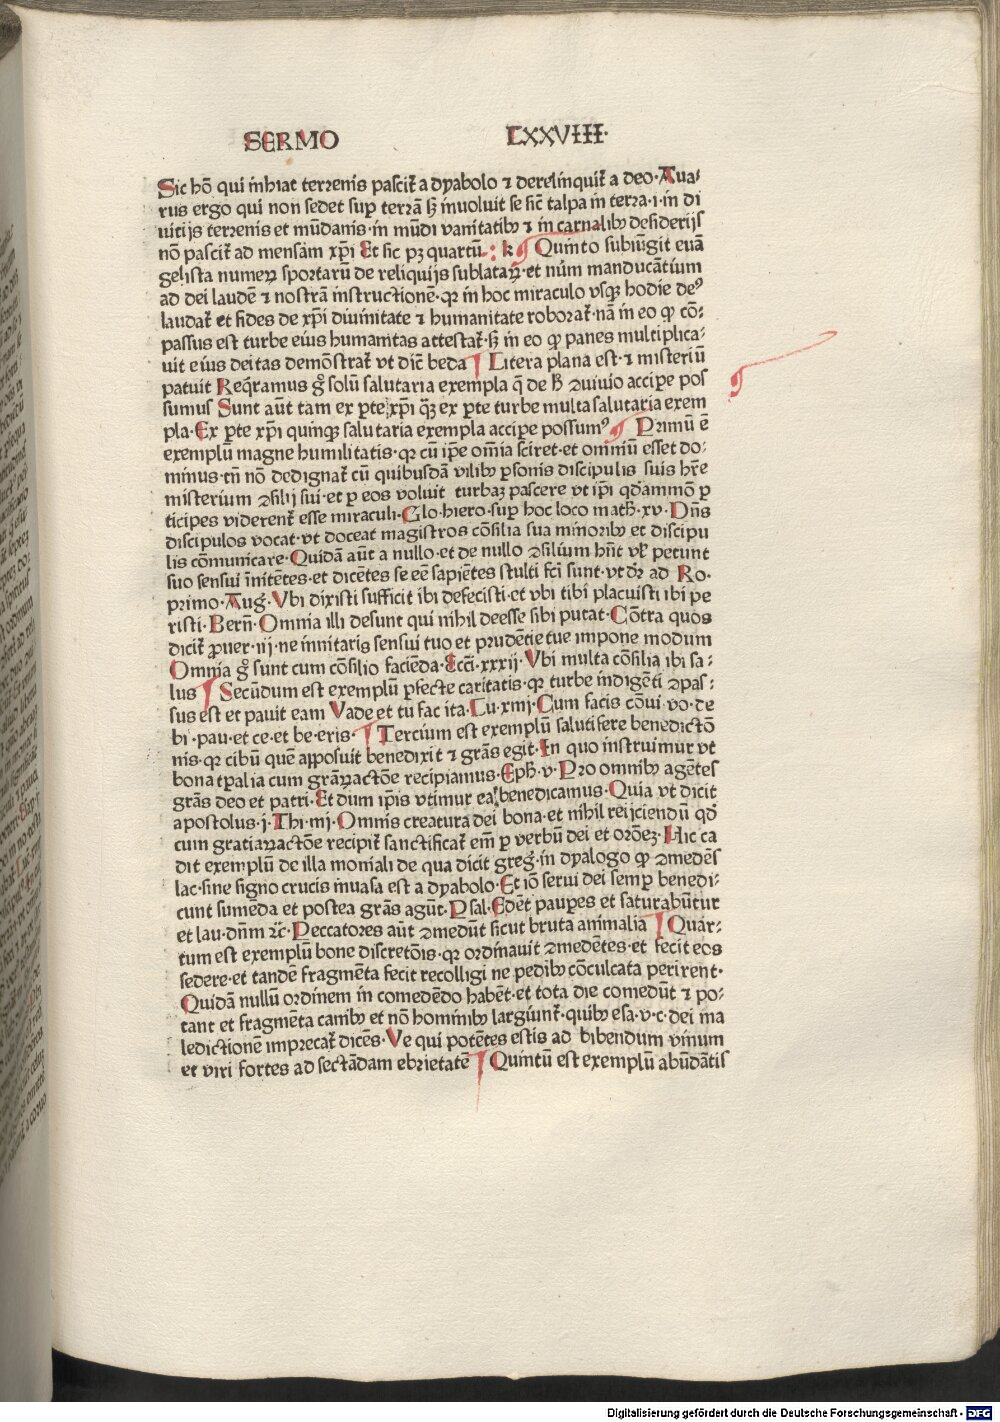 SERMO LXXVIII·
Sic hō qui inhiat terrenis pascit᷑ a dyabolo ⁊ derelinquit᷑ a deo·Aua⸗
rus ergo qui non sedet sup̱ terrā sꝫ inuoluit se sic̄ talpa in terra·i·in di
uitijs terrenis et mūdanis·in mūdi vanitatibꝫ ⁊ in carnalibꝫ desiderijs
nō pascit᷑ ad mensam xp̄i Et sic pꝫ quartū·: k ¶ Quinto subiūgit euā
gelista numeꝝ sportarū de reliquijs sublataꝝ·et nūm manducātium
ad dei laudē ⁊ nostrā instructionē·qꝛ in hoc miraculo vsqꝫ hodie deꝰ
laudat᷑ et fides de xp̄i diuinitate ⁊ humanitate roborat᷑·nā in eo ꝙ cō⸗
passus est turbe eius humanitas attestat᷑·sꝫ in eo ꝙ panes multiplica⸗
uit eius deitas demōstrat᷑ vt dic̄ beda ¶ Litera plana est·⁊ misteriū
patuit Req̄ramus gͦ solū salutaria exempla q̄ de ꝯuiuio accipe pos
sumus Sunt aūt tam ex ꝑte xp̄i qͣꝫ ex ꝑte turbe multa salutaria exem
pla·Ex ꝑte xp̄i quinqꝫ salutaria exempla accipe possumꝰ ¶ Primū ē
exemplū magne humilitatis·qꝛ cū ip̄e omīa sciret·et omniū esset do⸗
minus·tn̄ nō dedignat᷑ cū quibusdā vilibꝫ ꝑsonis discipulis suis hr̄e
misterium ꝯsilij sui·et ꝑ eos voluit turbaꝫ pascere vt ip̄i qd̓ammō ꝑ
ticipes viderent᷑ esse miraculi·Glo·hiero·sup̱ hoc loco math·xv·Dn̄s
discipulos vocat·vt doceat magistros cōsilia sua minoribꝫ et discipu
lis cōmunicare·Quidā aūt a nullo·et de nullo ꝯsilium hn̄t vl̓ petunt
suo sensui īnitētes·et dicētes se eē sapiētes stulti fc̄i sunt·vt dr̄ ad Ro·
primo·Aug̓·Vbi dixisti sufficit ibi defecisti·et vbi tibi placuisti ibi pe
risti·Bern̄·Omnia illi desunt qui nihil deesse sibi putat·Cōtra quos
dicit᷑ ꝓuer·iij·ne innitaris sensui tuo et prudētie tue impone modum
Omnia gͦ sunt cum cōsilio faciēda·Ecci·xxxij·Vbi multa cōsilia ibi sa⸗
lus ¶ Secūdum est exemplū ꝑfecte caritatis·qꝛ turbe indigēti ꝯpas⸗
sus est et pauit eam Vade et tu fac ita·Lu·xiiij·Cum facis cōui·vo·de
bi·pau·et ce·et be·eris·¶ Tercium est exemplū salutifere benedictō
nis·qꝛ cibū quē apposuit benedixit ⁊ grās egit·In quo instruimur vt
bona tꝑalia cum grāꝝactōe recipiamus·Eph·v·Pro omnibꝫ agētes
grās deo et patri·Et dum ip̄is vtimur ea benedicamus·Quia vt dicit
apostolus·j·Thi·iiij·Omnis creatura dei bona·et nihil reijciendū qd̓
cum gratiaꝝactōe recipit᷑ sanctificat᷑ em̄ ꝑ verbū dei et orōeꝫ·Hic ca
dit exemplū de illa moniali de qua dicit greg̓·in dyalogo ꝙ ꝯmedēs
lac·sine signo crucis inuasa est a dyabolo·Et iō serui dei semꝑ benedi⸗
cunt sumēda et postea grās agūt·Psal·Edēt pauꝑes et saturabūtur
et lau·dn̄m ⁊c̄·Peccatores aūt ꝯmedūt sicut bruta animalia ¶ Quar⸗
tum est exemplū bone discretōis·qꝛ ordinauit ꝯmedētes·et fecit eos
sedere·et tandē fragmēta fecit recolligi ne pedibꝫ cōculcata perirent·
Quidā nullū ordinem in comedēdo habēt·et tota die comedūt ⁊ po⸗
tant et fragmēta canibꝫ et nō hominibꝫ largiunt᷑·quibꝫ esa·v·c·dei ma
ledictionē imprecat᷑ dicēs·Ve qui potētes estis ad bibendum vinum
et viri fortes ad sectādam ebrietatē ¶ Quintū est exemplū abūdātis
Digitalisierung gefördert durch die Deutsche Forschungsgemeinschaft - DFG